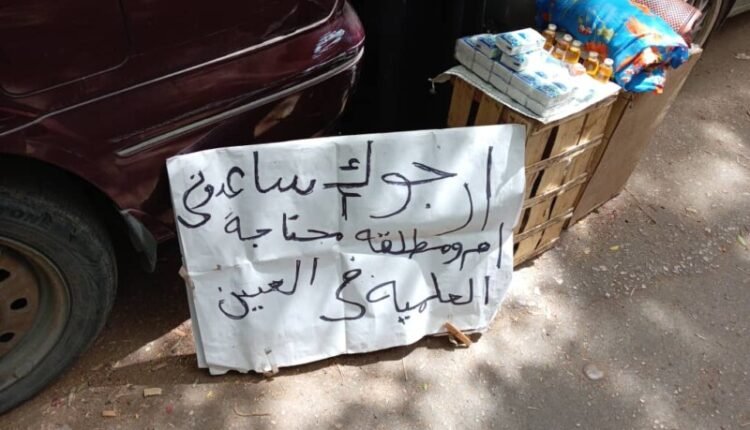 ارجوك ساعدوني
ام ومطلقه محتاجة
العلمية في العين